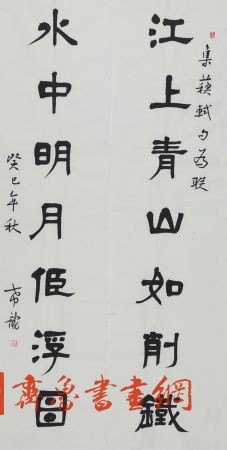 集蘇軾句為联
江上青山如削鐵
水中明月臥浮圖
癸巳年秋
齊魯書畫網